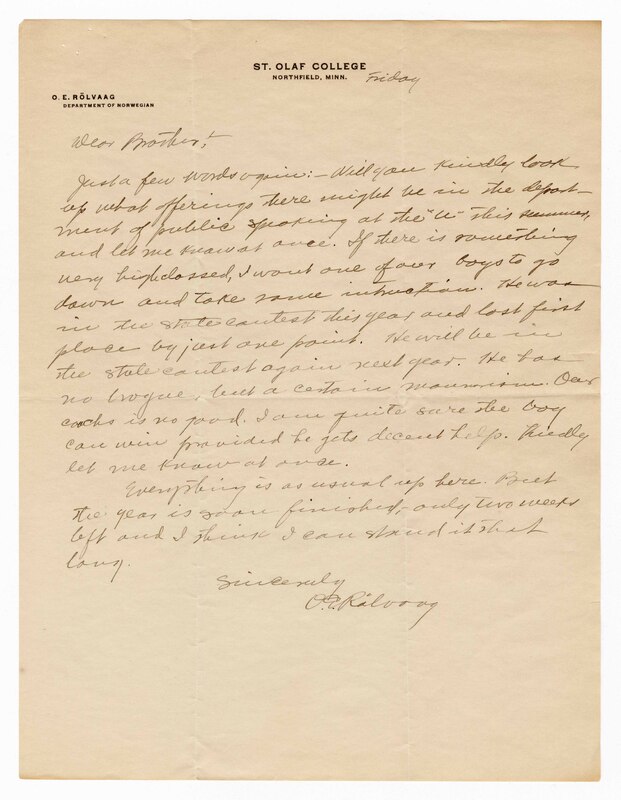 ST. OLAF COLLEGE
NORTHFIELD, MINN.
Friday
O. E. RÖLVAAG
DEPARTMENT OF NORWEGIAN
Dear Brother,!
Just a few words again:- Will you kindly look
up what offerings there might be in the depart-
ment of public speaking at the "U" this summer,
and let me know at once. If there is something
very highclassed, I want one of our boys to go
down and take some intruction. He was
in the state contest this year and lost first
place by just one point. He will be in
the state contest again next year. He has
no brogue, but a certain mannrism. Our
coachs is no good. I am quite sure the boy
can win provided he gets decent help. Kindly
let me know at once.
Everything is as usual up here. But
the year is soon finished, only two weeks
left and I think I can stand it that
long.
Sincerely
O.E. Rölvaag